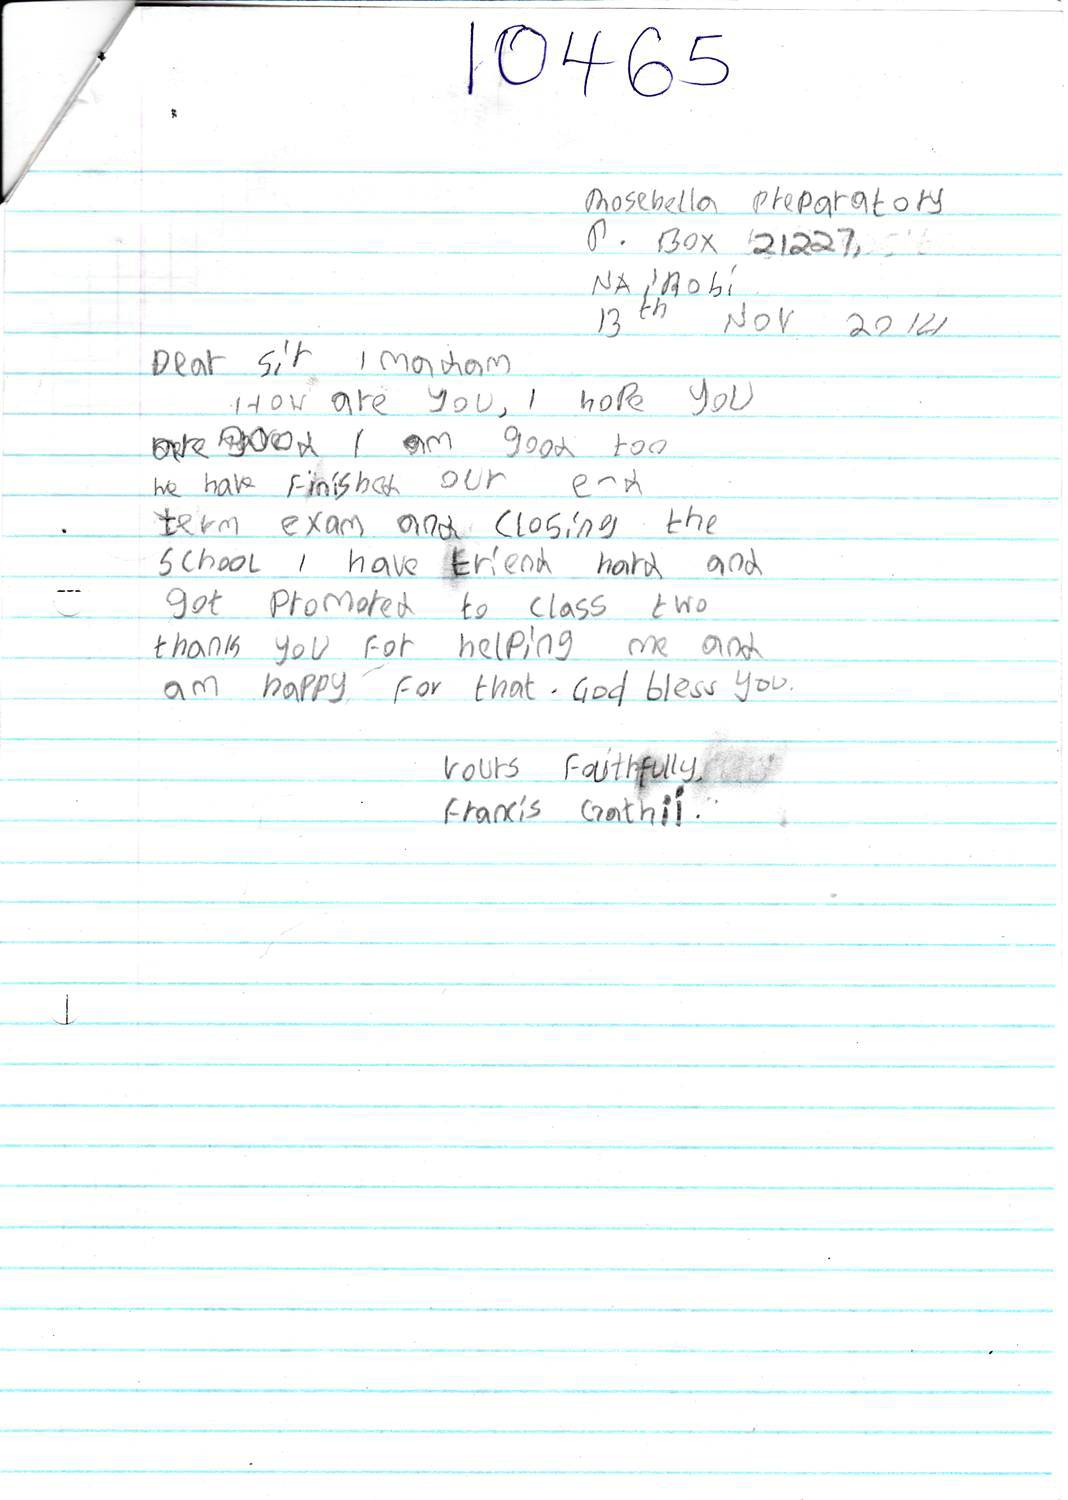 10465
Rosebella Preparatory
P. Box 21227,
NAiRobi
13th Nov 2014
Dear Sir / madam
How are You, I hope You
are good I am good too
we have Finished our end
term exam and Closing the
School I have triend hard and
got Promoted to class two
thank you For helping me and
am happy For that. God bless you.
Yours Faithfully.
Francis Gathii.